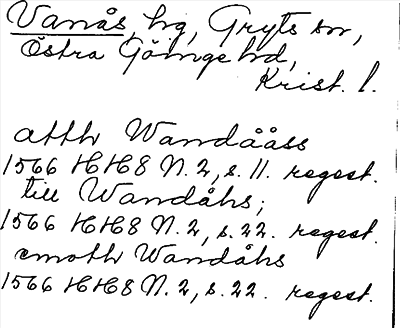 Vanås, hg, Gryts sn,
Östra Göinge hd,
Krist. l.
atth Wandååss
1566 HH8 N. 2, s. 11. regest.
till Wandåhs;
1566 HH8 N. 2, s. 22. regest.
emoth Wandåhs
1566 HH8 N. 2, s. 22. regest.